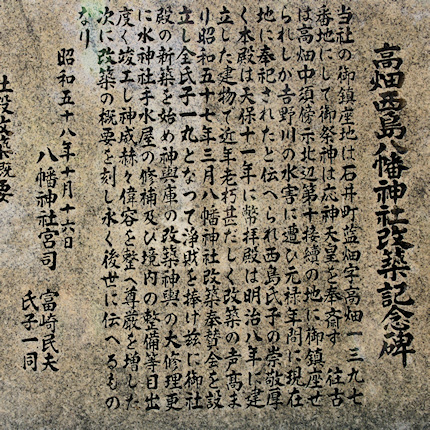 高畑西島八幡神社改築記念碑
当社の御鎮座地は石井町藍畑字高畑一三九七
番地にして御祭神は応神天皇を奉斎す 往古
は高畑中須傍示北辺第十接続の地に御鎮座せ
られしが吉野川の水害に遭ひ元禄年間に現在
地に奉祀されたと伝へられ西島氏子の崇敬厚
く本殿は天保十一年に幣拝殿は明治八年に建
立した建物で近年老朽甚だしく改築の声高ま
り昭和五十七年三月八幡神社改築奉賛会を設
立し全氏子一丸となつて浄財を捧げ茲に御社
殿の新築を始め神輿庫の改築神輿の大修理更
に水神社手水屋の修補及び境内の整備等目出
度く竣工し神威赫々偉容を整へ尊厳を増した
次に改築の概要を刻し永く後世に伝へるもの
なり
昭和五十八年十月十六日
八幡神社宮司 富崎民夫
氏子一同
社殿改築概要